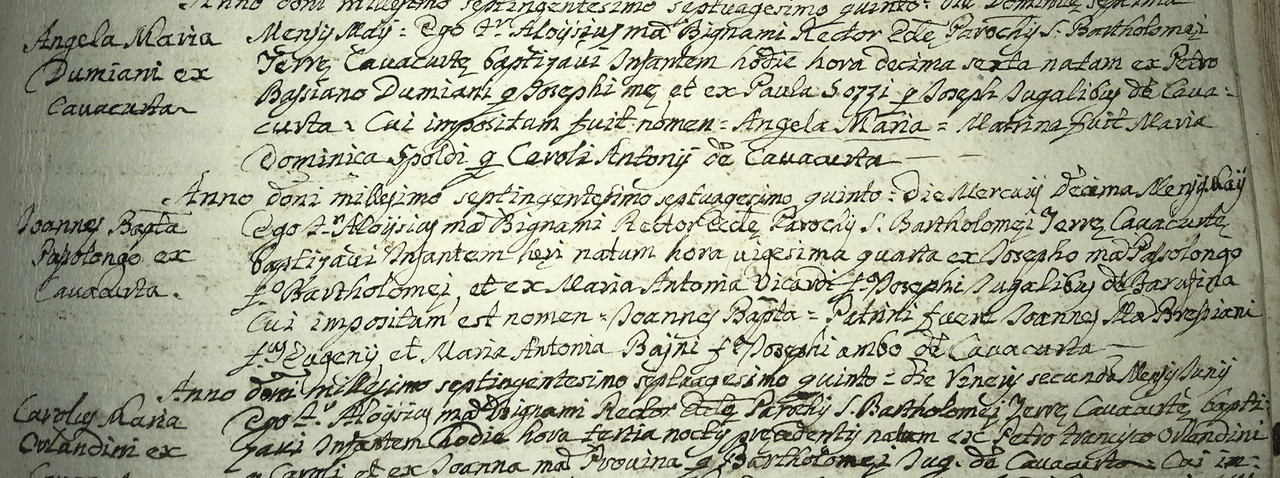 Anno doni millesimo septingentesimo septuagesimo quinto = die Dominica septima
Angela Maria
Dumiani ex
Cavacurta
Mensis Maij = Ego Aloysius ma Bignami Rector Eccle Parochs S. Bartholomei
Terre Cavacurte baptizavi Infantem hodie hora decima sexta natam ex Petro
Bassiano Dumiani q Josephi me et ex Paula Sozzi q Josephi Jugalibus de Cava=
curta. Cui impositum fuit nomen = Angela Maria = Matrina fuit Maria
Dominica Spoldi q Caroli Antonij de Cavacurta
Anno doni millesimo septingentesimo septuagesimo quinto = Die Mercurij decima Mensis Maij
Joannes Bapta
Passolongo ex
Cavacurta.
Ego Aloysius ma Bignami Rector Eccle Parochs S. Bartholomei Terre Cavacurte
baptizavi Infantem heri natum hora vigesima quarta ex Josepho ma Passolongo
fo Bartholomei, et ex Maria Antonia Vicardi fa Josephi Jugalibus de
Cui impositum est nomen = Joannes Bapta = Patrini fuere Joannes Bressiani
fus Eugenij et Maria Antonia Bajni fa Josephi ambo de Cavacurta
Anno doni millesimo septingentesimo septuagesimo quinto = die Veneris secunda Mensis Junij
Carolus Maria
Orlandini ex
ego Aloysius ma Bignami Rector Eccle Parochs S. Bartholomei Terre Cavacurte bapti=
zavi Infantem hodie hora tertia noctis precedentis natum ex Petro Francisco Orlandini
q Caroli et ex Joanna ma Provina q Bartholomei Jug. de Cavacurta = Cui im=